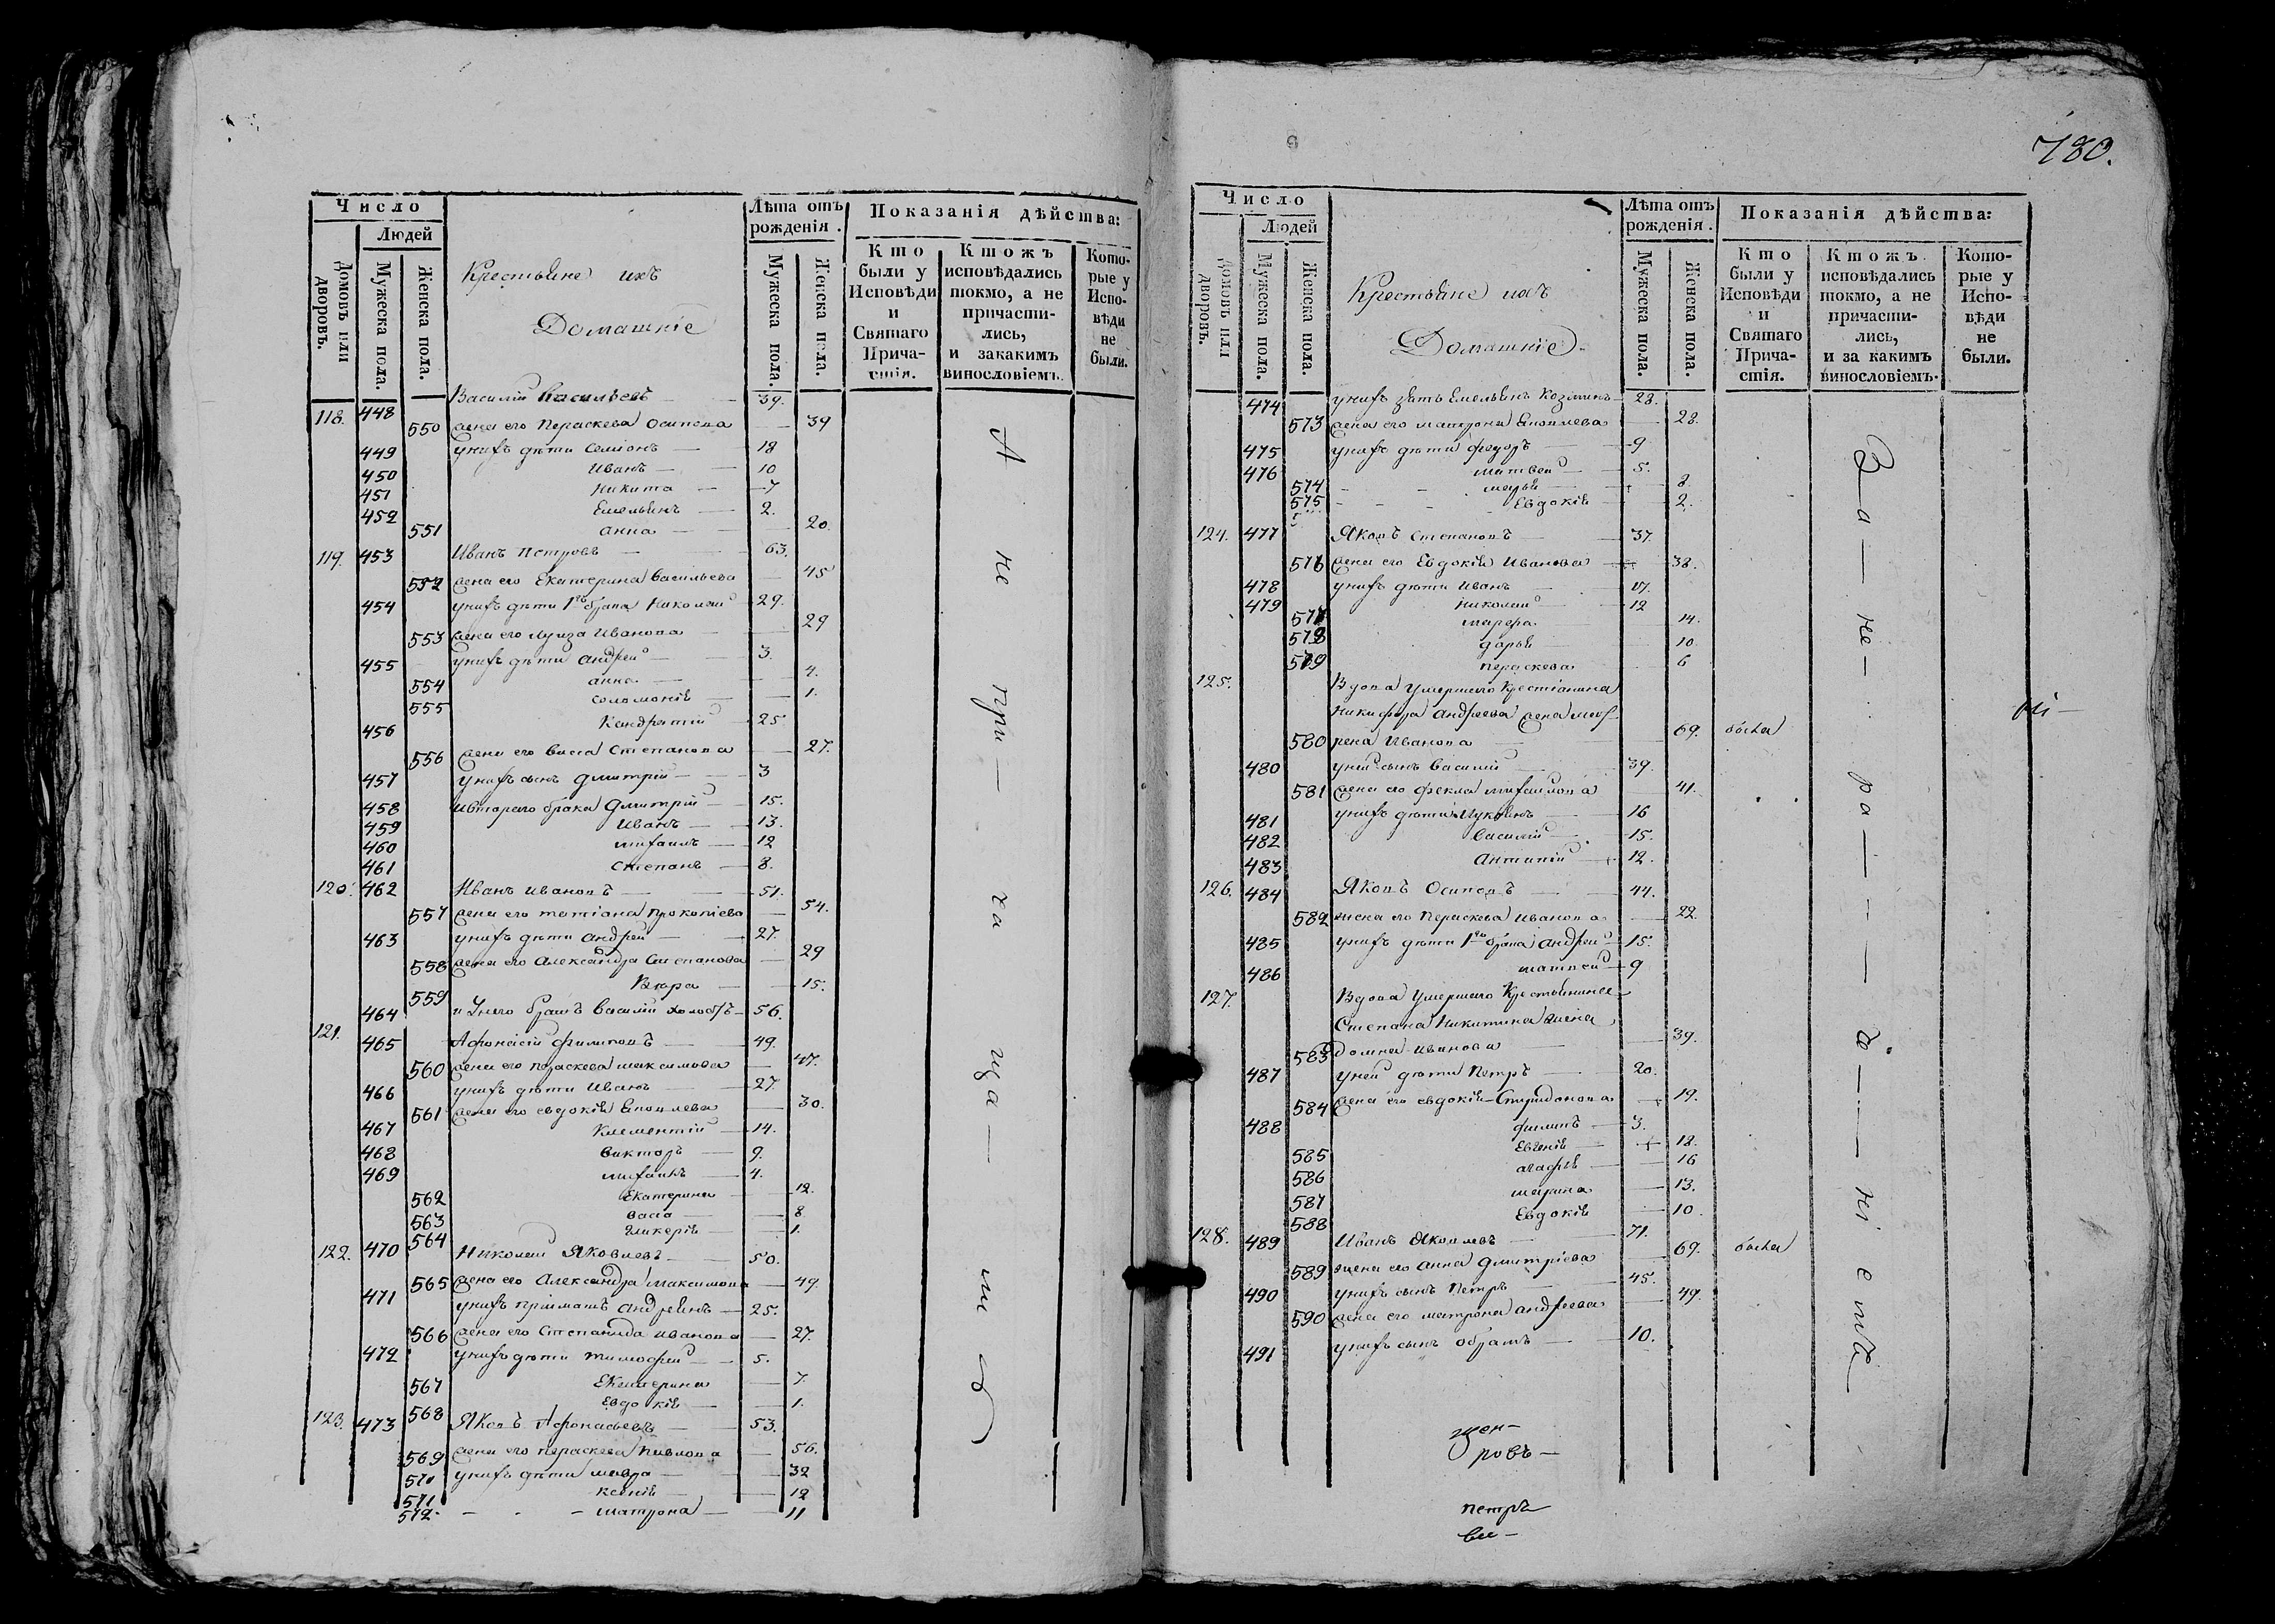 Число
Людей
Домовъ или дворовъ.
Мужеска пола.
Женска пола.
Крестьяне ихъ
Домашніе
Лѣта отъ рожденія.
Мужеска пола.
Женска пола.
Показанія дѣйства:
Кто были у Исповѣди и Святаго Причастія.
Ктожъ исповѣдались токмо, а не причастились, и закакимъ винословіемъ.
Которые у Исповѣди не были.
118. 448 Василій Васильевъ — 39.
550 жена его Пераскева Осипова — 39
449 у нихъ дѣти Семіонъ — 18
450 Иванъ — 10
451 Никита — 7
452 Емельянъ — 2.
551 Анна — 20.
119. 453 Иванъ Петровъ — 63.
552 жена его Екатерина Васильева — 45
454 у нихъ дѣти 1го брака Николай 29.
553 жена его Луиза Иванова — 29
455 у нихъ дѣти Андрей — 3
554 Анна — 4.
555 Соломонія — 1.
456 Кондратій — 25
556 жена его Васса Степанова — 27.
457 у нихъ сынъ Дмитрій — 3
458 и втораго брака Дмитрій — 15.
459 Иванъ — 13.
460 Михаилъ — 12
461 Степанъ — 8.
120. 462 Иванъ Ивановъ — 51.
557 жена его Татіана Прокопіева — 54.
463 у нихъ дѣти Андрей — 27.
558 жена его Александра Степанова — 29
559 Вѣра — 15.
464 и у него братъ Василій холостъ — 56.
121. 465 Афонасій Филиповъ — 49.
560 жена его Пераскева Максимова — 47.
466 у нихъ дѣти Иванъ — 27.
561 жена его Евдокія Яковлева — 30.
467 Климентій — 14.
468 Викторъ — 9.
469 Михаилъ — 4.
562 Екатерина — 12.
563 Васса — 8
564 Гликерія — 1.
122. 470 Николай Яковлевъ — 50.
565 жена его Александра Максимова — 49
471 у нихъ пріимышъ Андреянъ — 25.
566 жена его Степанида Иванова — 27.
472 у нихъ дѣти Тимофей — 5.
567 Екатерина — 7.
568 Евдокія — 1.
123. 473 Яковъ Афонасьевъ — 53.
569 жена его Пераскева Павлова — 56.
570 у нихъ дѣти Мавра — 32
571 Ксенія — 12
572. Матрона — 11
780.
Число
Людей
Домовъ или дворовъ.
Мужеска пола.
Женска пола.
Крестьяне ихъ
Домашніе
Лѣта отъ рожденія.
Мужеска пола.
Женска пола.
Показанія дѣйства:
Кто были у Исповѣди и Святаго Причастія.
Ктожъ исповѣдались токмо, а не причастились, и за какимъ винословіемъ.
Которые у Исповѣди не были.
474 у нихъ зять Емельянъ Козминъ — 28.
573 жена его Матрона Яковлева — 28.
475 у нихъ дѣти Федоръ — 9
476 Матвей — 5.
574 Марья — 8
575 Евдокія — 2.
124. 477 Яковъ Степановъ — 37.
576 жена его Евдокія Иванова — 38.
478 у нихъ дѣти Иванъ — 17.
479 Николай — 12
577 Марфа — 14.
578 Дарья — 10.
579 Пераскева — 6
125. Вдова умершаго крестіанина
Никифора Андреева жена
580 Иванова — 69. была
480 у ней сынъ Василій — 39.
581 жена его Фекла Михаилова — 41.
481 у нихъ дѣти Лукьянъ — 16
482 Василій — 15.
483 Антипій — 12.
126. 484 Яковъ Осиповъ — 44.
582 жена его Пераскева Иванова — 22.
485 у нихъ дѣти 1го брака Андрей — 15.
486 Матвей — 9
127. Вдова умершаго крестьянина
Степана Никитина жена
583 Домна Иванова — 39.
487 у ней дѣти Петръ — 20.
584 жена его Евдокія Спиридонова — 19.
488 Филипъ — 3.
585 Евгенія — 18.
586 Агафья — 16
587 Марина — 13.
588 Евдокія — 10.
128. 489 Иванъ Яковлевъ — 71.
589 жена его Анна Дмитріева — 69. была
490 у нихъ сынъ Петръ — 45.
590 жена его Матрона Андреева — 49.
491 у нихъ сынъ Абрамъ — 10.
За — не — ра — дѣ — ніемъ
ровъ —
Петръ